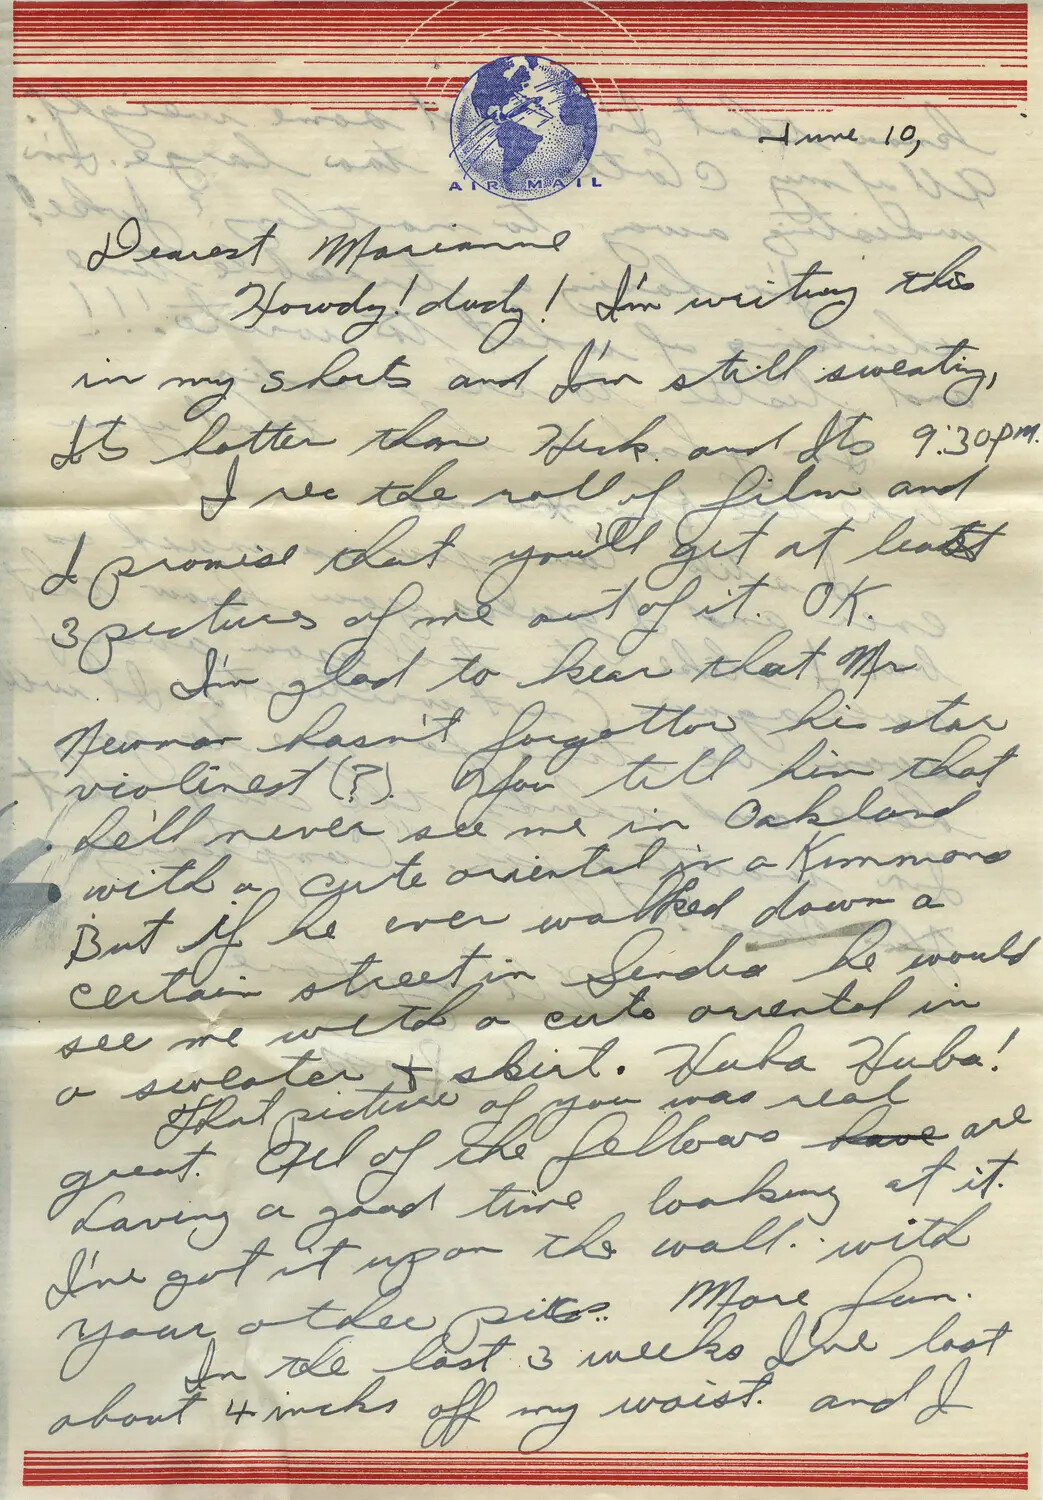 AIR MAIL
June 10,
Dearest Marianne
Howdy! dudy! I'm writing this
in my shorts and I'm still sweating,
It's hotter than Heck. and Its 9:30pm.
I rec the roll of film and
I promise that you'll get at least
3 pictures of me out of it. OK.
I'm glad to hear that Mr
Newman hasn't forgotton his star
violinest (?). You tell him that
he'll never see me in Oakland
with a cute oriental in a Kimmono
But if he ever walked down a
certain street in Sendia he would
see me with a cute oriental in
a sweater + skirt. Huba Huba!
That picture of you was real
great. All of the fellows have are
having a good time looking at it.
I've got it up on the wall. with
your other pics. More fun.
In the last 3 weeks I've lost
about 4 inchs off my waist. and I